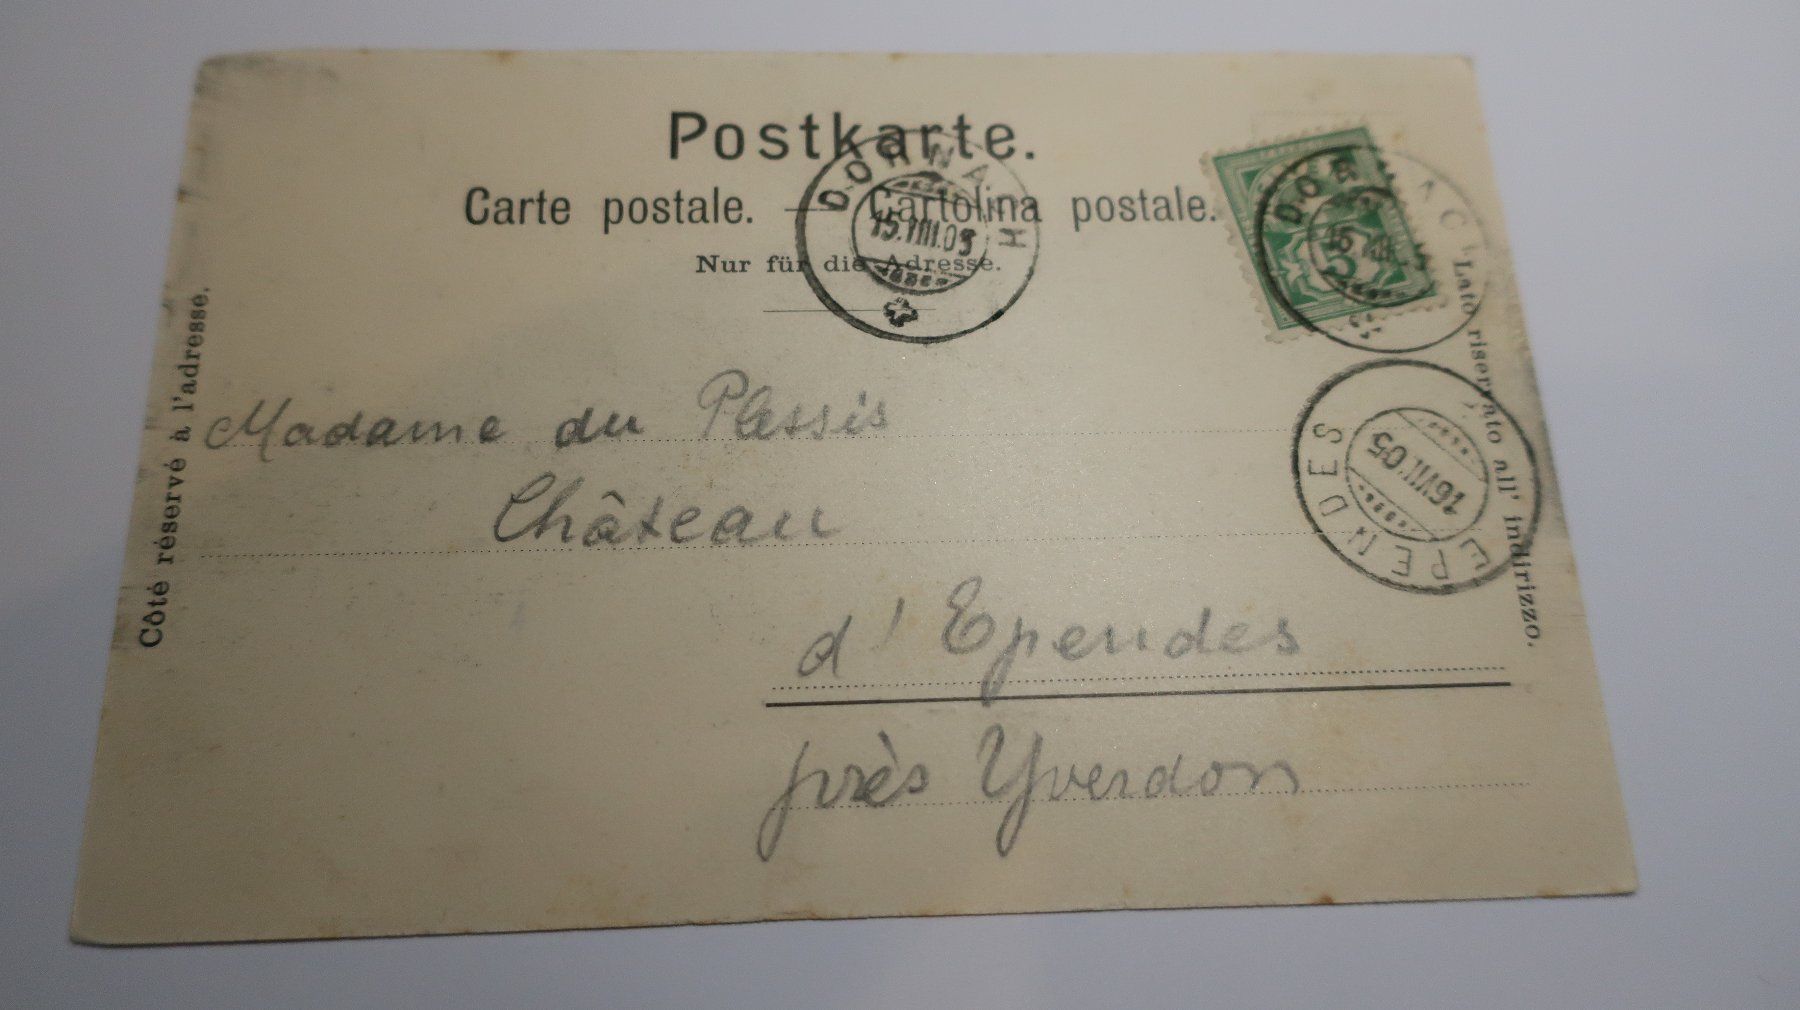 Postkarte.
Carte postale. — Cartolina postale.
Nur für die Adresse.
Côté réservé à l'adresse.
Lato riservato all' indirizzo.
DORNACH
15.VIII.05
DORNACH
15 VIII
5
EPENDES
16 VIII.05
Madame du Plessis
Château
d'Ependes
près Yverdon